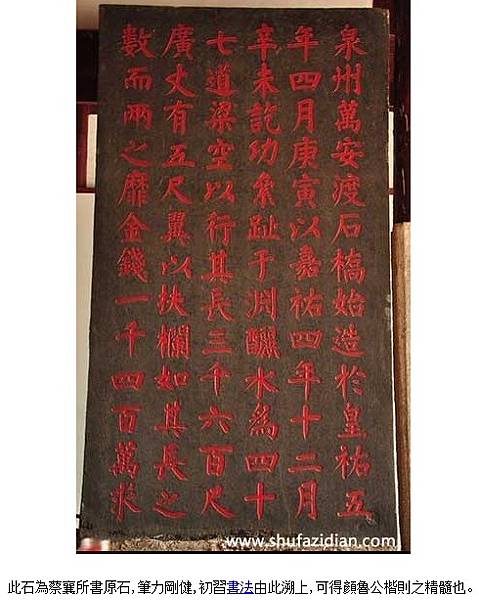 泉州萬安渡石橋始造於皇祐五
年四月庚寅以嘉祐四年十二月
辛未訖功絫趾于淵釃水爲四十
七道梁空以行其長三千六百尺
廣丈有五尺翼以扶欄如其長之
數而兩之靡金錢一千四百萬求
www.shufazidian.com
此石為蔡襄所書原石,筆力剛健,初習書法由此溯上,可得顏魯公楷則之精髓也。